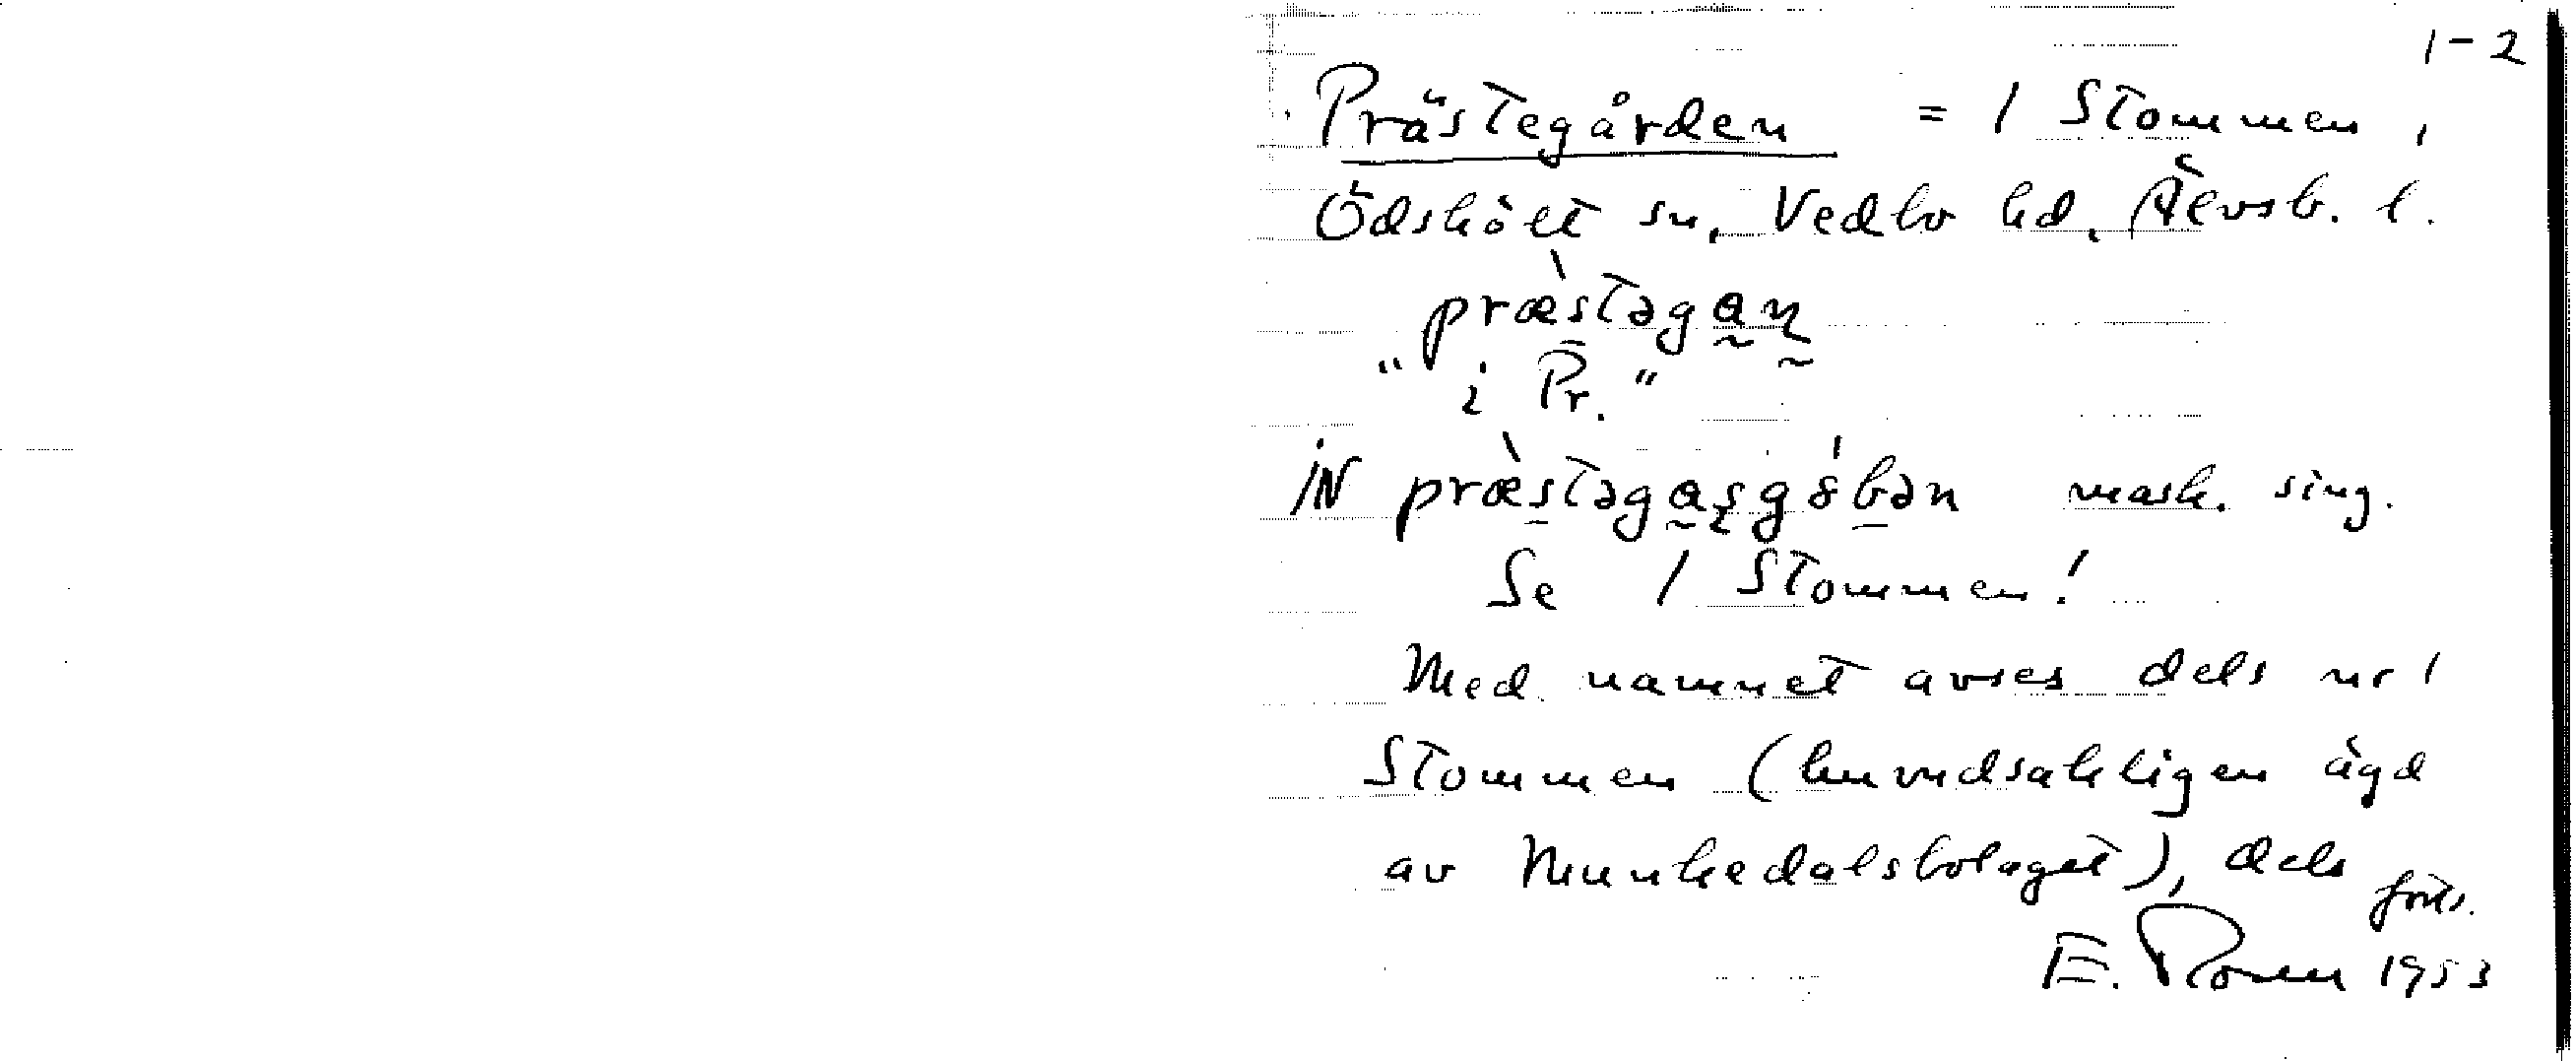 1-2
Prästegården = 1 Stommen,
Ödskölt sn, Vedbo hd, Älvsb. l.
præ̀stəgaɳ
"i Pr."
IN præ̀stəgaʂgóbən mask. sing.
Se 1 Stommen!
Med namnet avses dels nr 1
Stommen (huvudsakligen ägd
av Munkedalsbolaget), dels forts.
E. Rosen 1953